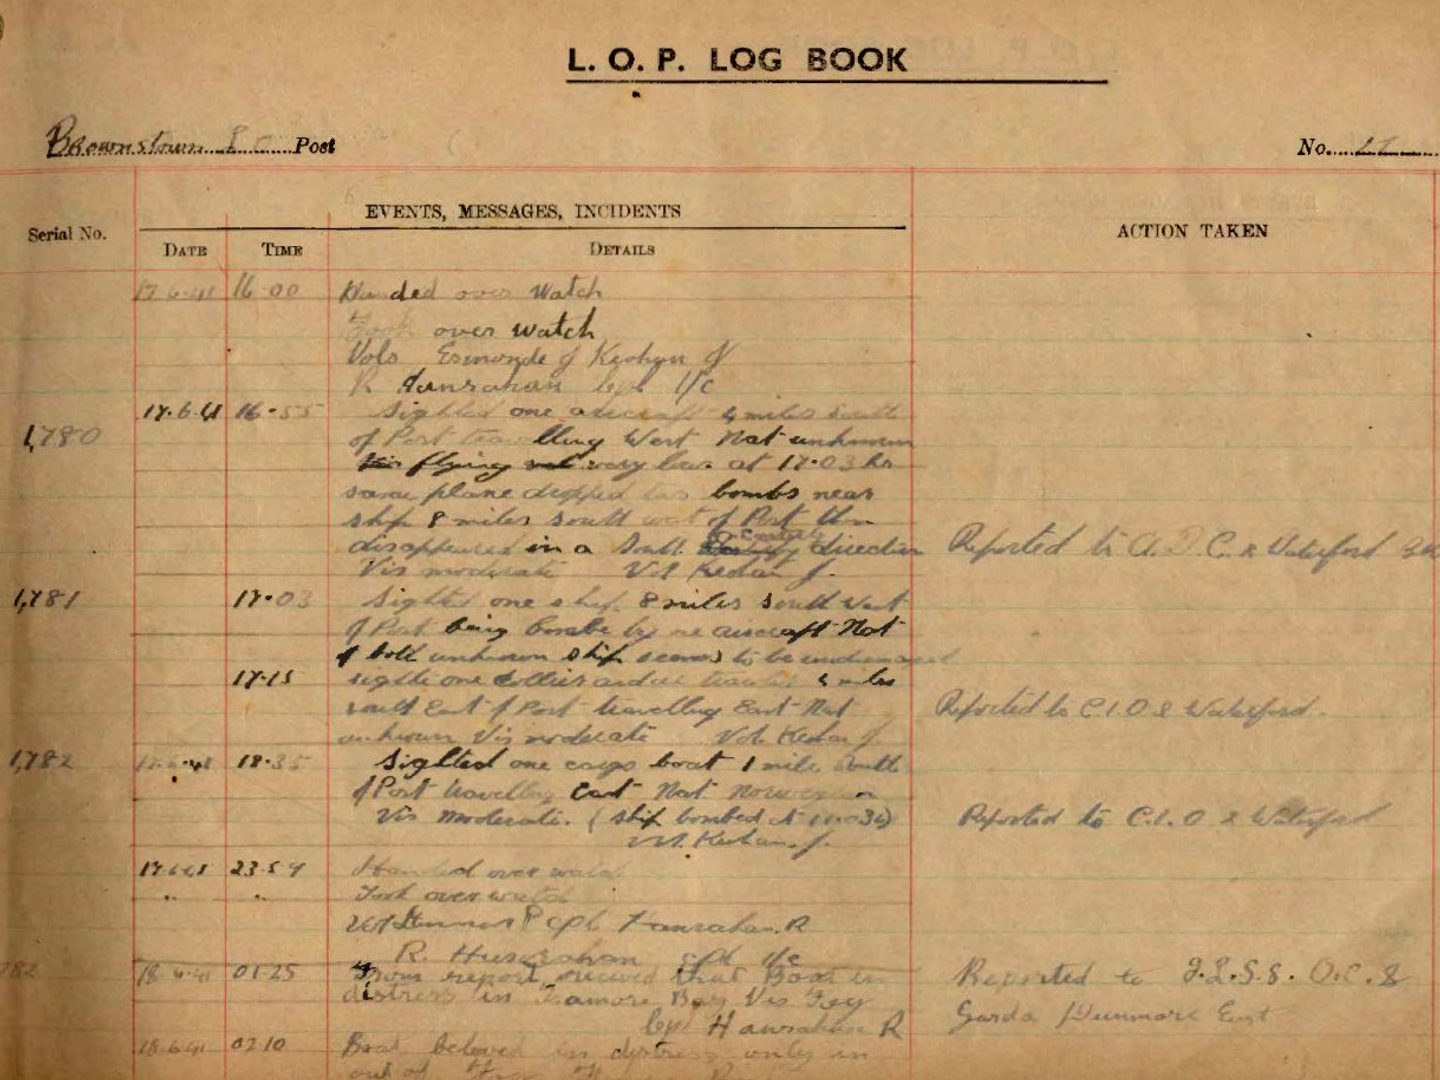 L. O. P. LOG BOOK
Brownstown Post
No.
EVENTS, MESSAGES, INCIDENTS
Serial No.
ACTION TAKEN
DATE TIME DETAILS
17.6.41 16.00 Handed over watch
Took over watch
Vols Esmonde J Keohan J
R Hanrahan Cpl I/C
17.6.41 16.55 Sighted one aircraft 4 miles South
1,780 of Post travelling West Nat unknown
flying very low at 17.03 hr
same plane dropped two bombs near
ship 8 miles south west of Post then
disappeared in a South direction Reported to A.D.C. & Waterford
Vis moderate Vol Keohan J.
1,781 17.03 Sighted one ship 8 miles South West
of Post being bombe by one aircraft Nat
of both unknown ship seems to be undamaged
17.15 sighte one Collier 4 miles
south East of Post travelling East Nat Reported to C.I.O & Waterford.
unknown Vis moderate Vol. Keohan J.
1,782 17.6.41 18.35 Sighted one cargo boat 1 mile South
of Post travelling East Nat Norwegian
Vis moderate. (ship bombed at 17.03) Reported to C.I.O & Waterford
Vol. Keohan J.
17.6.41 23.59 Handed over watch
" " Took over watch
Cpl Hanrahan. R
R. Hanrahan Cpl I/c
782 18.6.41 01.25 From report recieved that Boat in Reported to O.C. &
distress in Tramore Bay Vis Fog
Cpl Hanrahan R Garda Dunmore East
18.6.41 02 10 Boat beleved in distress only in
out of